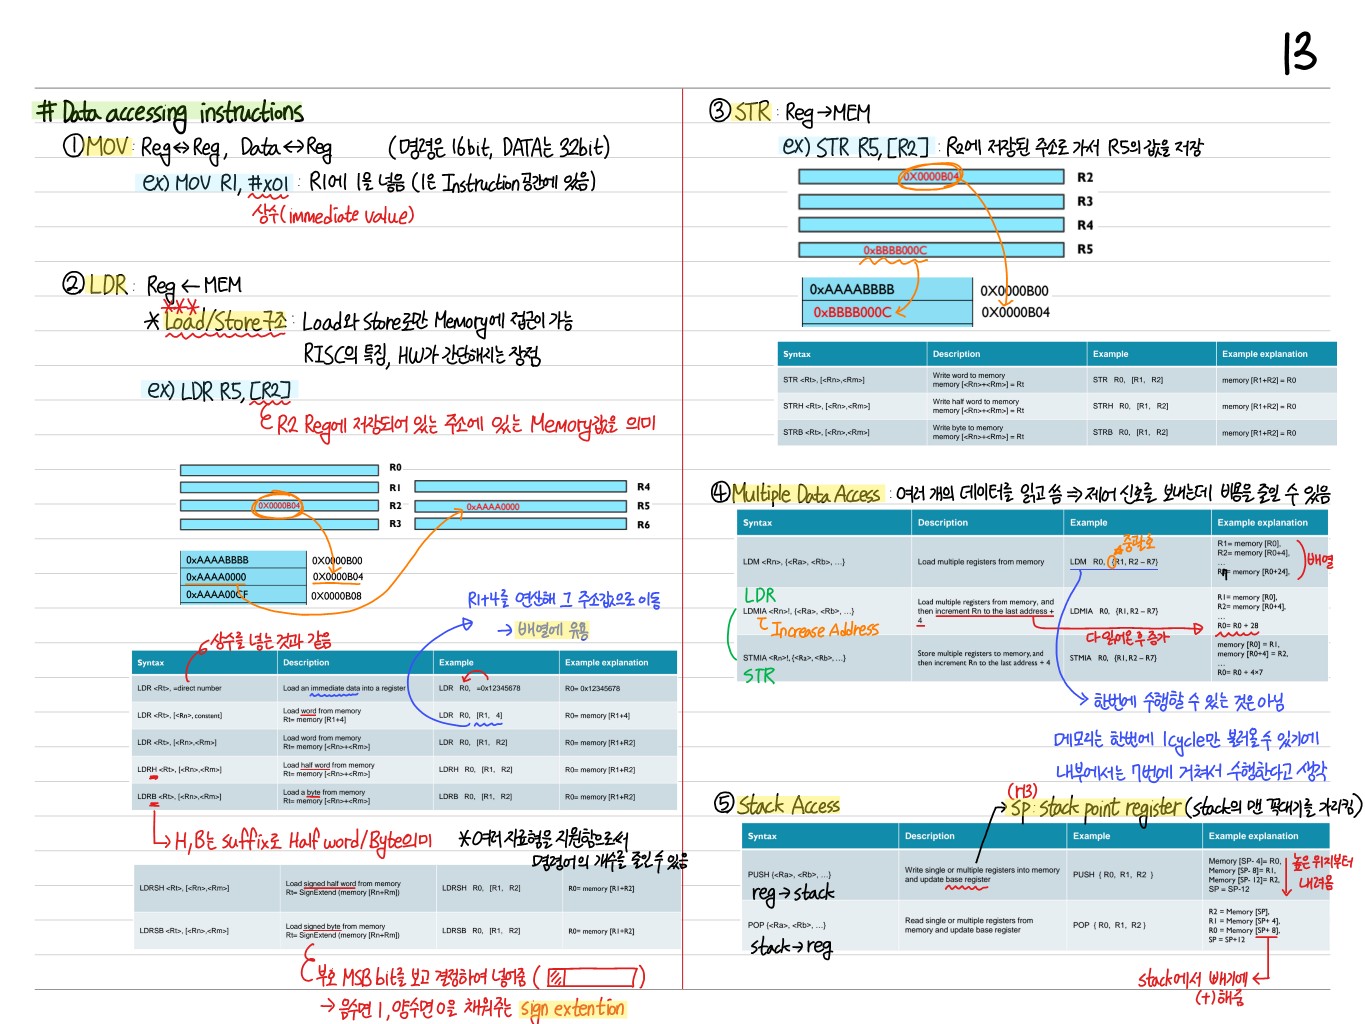 13
# Data accessing instructions
① MOV : Reg↔Reg, Data↔Reg (명령은 16bit, DATA는 32bit)
ex) MOV R1, #x01 : R1에 1을 넣음 (1은 Instruction 공간에 있음)
상수(immediate value)
② LDR : Reg ← MEM
***
* Load/Store구조 : Load와 Store로만 Memory에 접근이 가능
RISC의 특징, HW가 간단해지는 장점
ex) LDR R5, [R2]
R2 Reg에 저장되어 있는 주소에 있는 Memory값을 의미
R0
R1
R4
0X0000B04
R2
0xAAAA0000
R5
R3
R6
0xAAAABBBB 0X0000B00
0xAAAA0000 0X0000B04
0xAAAA00CF 0X0000B08
R1+4를 연산해 그 주소값으로 이동
→ 배열에 유용
상수를 넣는 것과 같음
Syntax Description Example Example explanation
LDR <Rt>, =direct number Load an immediate data into a register LDR R0, =0x12345678 R0= 0x12345678
LDR <Rt>, [<Rn>, constant] Load word from memory
Rt= memory [R1+4] LDR R0, [R1, 4] R0= memory [R1+4]
LDR <Rt>, [<Rn>,<Rm>] Load word from memory
Rt= memory [<Rn>+<Rm>] LDR R0, [R1, R2] R0= memory [R1+R2]
LDRH <Rt>, [<Rn>,<Rm>] Load half word from memory
Rt= memory [<Rn>+<Rm>] LDRH R0, [R1, R2] R0= memory [R1+R2]
LDRB <Rt>, [<Rn>,<Rm>] Load a byte from memory
Rt= memory [<Rn>+<Rm>] LDRB R0, [R1, R2] R0= memory [R1+R2]
→ H, B는 suffix로 Half word/Byte의미
* 여러 자료형을 지원함으로써
명령어의 개수를 줄일 수 있음
LDRSH <Rt>, [<Rn>,<Rm>] Load signed half word from memory
Rt= SignExtend (memory [Rn+Rm]) LDRSH R0, [R1, R2] R0= memory [R1+R2]
LDRSB <Rt>, [<Rn>,<Rm>] Load signed byte from memory
Rt= SignExtend (memory [Rn+Rm]) LDRSB R0, [R1, R2] R0= memory [R1+R2]
부호 MSB bit를 보고 결정하여 넣어줌 ( )
→ 음수면 1, 양수면 0을 채워주는 sign extention
③ STR : Reg→MEM
ex) STR R5, [R2] : R2에 저장된 주소로 가서 R5의 값을 저장
0X0000B04 R2
R3
R4
0xBBBB000C R5
0xAAAABBBB 0X0000B00
0xBBBB000C 0X0000B04
Syntax Description Example Example explanation
STR <Rt>, [<Rn>,<Rm>] Write word to memory
memory [<Rn>+<Rm>] = Rt STR R0, [R1, R2] memory [R1+R2] = R0
STRH <Rt>, [<Rn>,<Rm>] Write half word to memory
memory [<Rn>+<Rm>] = Rt STRH R0, [R1, R2] memory [R1+R2] = R0
STRB <Rt>, [<Rn>,<Rm>] Write byte to memory
memory [<Rn>+<Rm>] = Rt STRB R0, [R1, R2] memory [R1+R2] = R0
④ Multiple Data Access : 여러 개의 데이터를 읽고 씀 ⇒ 제어 신호를 보내는데 비용을 줄일 수 있음
Syntax Description Example Example explanation
중괄호
LDM <Rn>, {<Ra>, <Rb>, …} Load multiple registers from memory LDM R0, {R1, R2 – R7} R1= memory [R0],
R2= memory [R0+4],
…
R7= memory [R0+24],
배열
LDR
LDMIA <Rn>!, {<Ra>, <Rb>, …} Load multiple registers from memory, and
then increment Rn to the last address +
4 LDMIA R0, {R1, R2 – R7} R1= memory [R0],
R2= memory [R0+4],
…
R0= R0 + 28
Increase Address
다 읽어온 후 증가
STMIA <Rn>!, {<Ra>, <Rb>, …} Store multiple registers to memory, and
then increment Rn to the last address + 4 STMIA R0, {R1, R2 – R7} memory [R0] = R1,
memory [R0+4] = R2,
…
R0= R0 + 4×7
STR
→ 한번에 수행할 수 있는 것은 아님
메모리는 한번에 1cycle만 불러올 수 있기에
내부에서는 7번에 거쳐서 수행한다고 생각
⑤ Stack Access
(r13)
SP : stack point register (stack의 맨 꼭대기를 가리킴)
Syntax Description Example Example explanation
PUSH {<Ra>, <Rb>, …} Write single or multiple registers into memory
and update base register PUSH { R0, R1, R2 } Memory [SP- 4]= R0,
Memory [SP- 8]= R1,
Memory [SP- 12]= R2,
SP = SP-12
reg→stack
높은 위치부터
내려옴
POP {<Ra>, <Rb>, …} Read single or multiple registers from
memory and update base register POP { R0, R1, R2 } R2 = Memory [SP],
R1 = Memory [SP+ 4],
R0 = Memory [SP+ 8],
SP = SP+12
stack→reg
stack에서 빼기에
(+)해줌